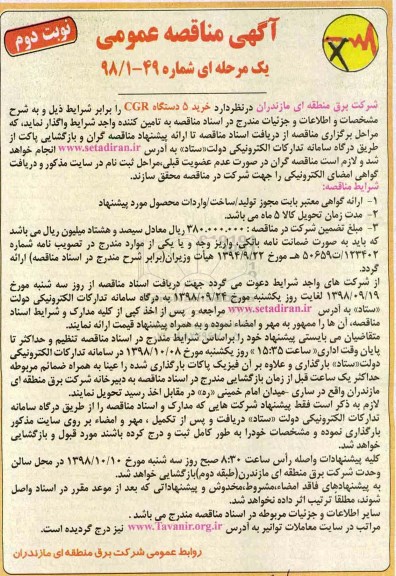 نوبت دوم
آگهی مناقصه عمومی
یک مرحله ای شماره ۴۹-۹۸/۱
شرکت برق منطقه ای مازندران درنظردارد خرید ۵ دستگاه CGR را برابر شرایط ذیل و به شرح
مشخصات و اطلاعات و جزئیات مندرج در اسناد مناقصه به تامین کننده واجد شرایط واگذار نماید، که
مراحل برگزاری مناقصه از دریافت اسناد مناقصه تا ارائه پیشنهاد مناقصه گران و بازگشایی پاکت از
طریق درگاه سامانه تدارکات الکترونیکی دولت«ستاد» به آدرس www.setadiran.ir انجام خواهد
شد و لازم است مناقصه گران در صورت عدم عضویت قبلی،مراحل ثبت نام در سایت مذکور و دریافت
گواهی امضای الکترونیکی را جهت شرکت در مناقصه محقق سازند.
شرایط مناقصه:
۱- ارائه گواهی معتبر بابت مجوز تولید/ساخت/واردات محصول مورد پیشنهاد
۲- مدت زمان تحویل کالا ۵ ماه می باشد.
۳- مبلغ تضمین شرکت در مناقصه : ۳۸۰.۰۰۰.۰۰۰ ریال معادل سیصد و هشتاد میلیون ریال می باشد
که باید به صورت ضمانت نامه بانکی، واریز وجه و یا یکی از موارد مندرج در تصویب نامه شماره
۱۲۳۴۰۲/ت۵۰۶۵۹ هـ مورخ ۱۳۹۴/۹/۲۲ هیأت وزیران(برابر شرح مندرج در اسناد مناقصه) ارائه
گردد.
از شرکت های واجد شرایط دعوت می گردد جهت دریافت اسناد مناقصه از روز سه شنبه مورخ
۱۳۹۸/۰۹/۱۹ لغایت روز یکشنبه مورخ ۱۳۹۸/۰۹/۲۴ به درگاه سامانه تدارکات الکترونیکی دولت
«ستاد» به آدرس www.setadiran.ir مراجعه و پس از اخذ کپی از کلیه مدارک و شرایط اسناد
مناقصه، آن ها را ممهور به مهر و امضاء نموده و به همراه پیشنهاد قیمت ارائه نمایند.
متقاضیان می بایستی پیشنهاد خود را براساس شرایط مندرج در اسناد مناقصه تنظیم و حداکثر تا
پایان وقت اداری« ساعت ۱۵:۳۵ » روز یکشنبه مورخ ۱۳۹۸/۱۰/۰۸ در سامانه تدارکات الکترونیکی
دولت«ستاد» بارگذاری و علاوه بر آن فیزیک پاکات بارگذاری شده را عینا به همراه ضمائم مربوطه
حداکثر یک ساعت قبل از زمان بازگشایی مندرج در اسناد مناقصه به دبیرخانه شرکت برق منطقه ای
مازندران واقع در ساری -میدان امام خمینی «ره» در مقابل اخذ رسید تحویل نمایند.
لازم به ذکر است فقط پیشنهاد شرکت هایی که مدارک و اسناد مناقصه را از طریق درگاه سامانه
تدارکات الکترونیکی دولت «ستاد» دریافت و پس از تکمیل ، مهر و امضاء بر روی سایت مذکور
بارگذاری نموده و مشخصات خودرا به طور کامل ثبت و درج کرده باشند مورد قبول و بازگشایی
خواهد شد.
کلیه پیشنهادات واصله رأس ساعت ۸:۳۰ صبح روز سه شنبه مورخ ۱۳۹۸/۱۰/۱۰ در محل سالن
وحدت شرکت برق منطقه ای مازندرن(طبقه دوم)بازگشایی خواهد شد.
به پیشنهادهای فاقد امضاء،مشروط،مخدوش و پیشنهاداتی که بعد از موعد مقرر در اسناد واصل
شوند، مطلقا ترتیب اثر داده نخواهد شد.
سایر اطلاعات و جزئیات مربوطه در اسناد مناقصه مندرج می باشد .
مراتب در سایت معاملات توانیر به آدرس www.Tavanir.org.ir نیز درج گردیده است.
روابط عمومی شرکت برق منطقه ای مازندران